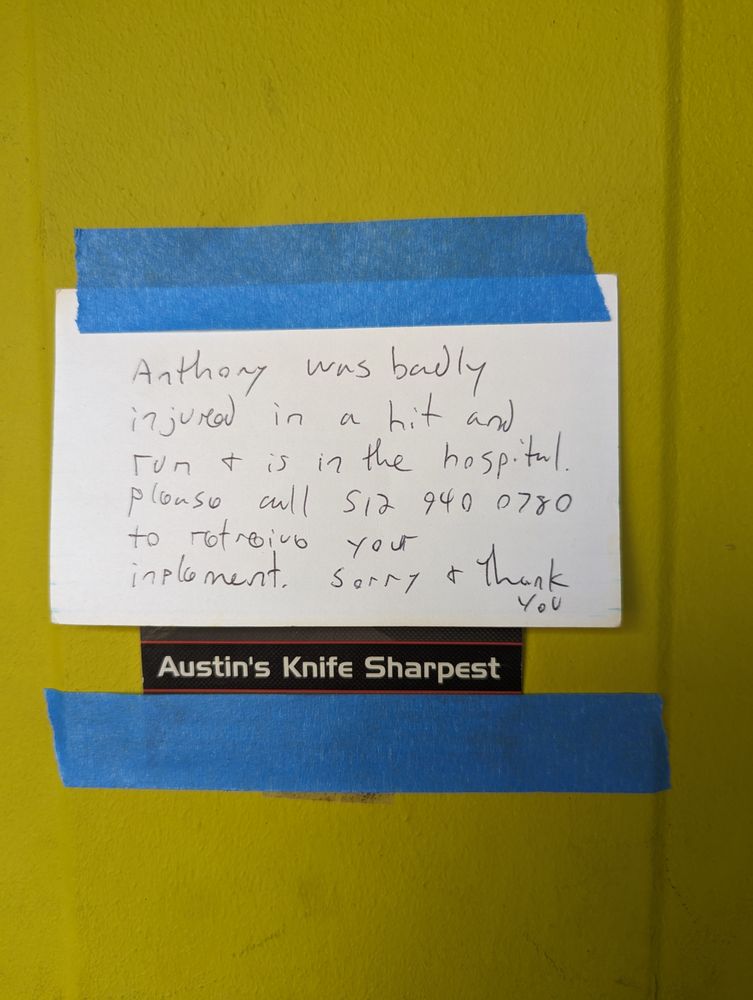 Anthony was badly
injured in a hit and
run + is in the hospital.
please call 512 940 0780
to retreive your
inplement. Sorry + Thank
You
Austin's Knife Sharpest